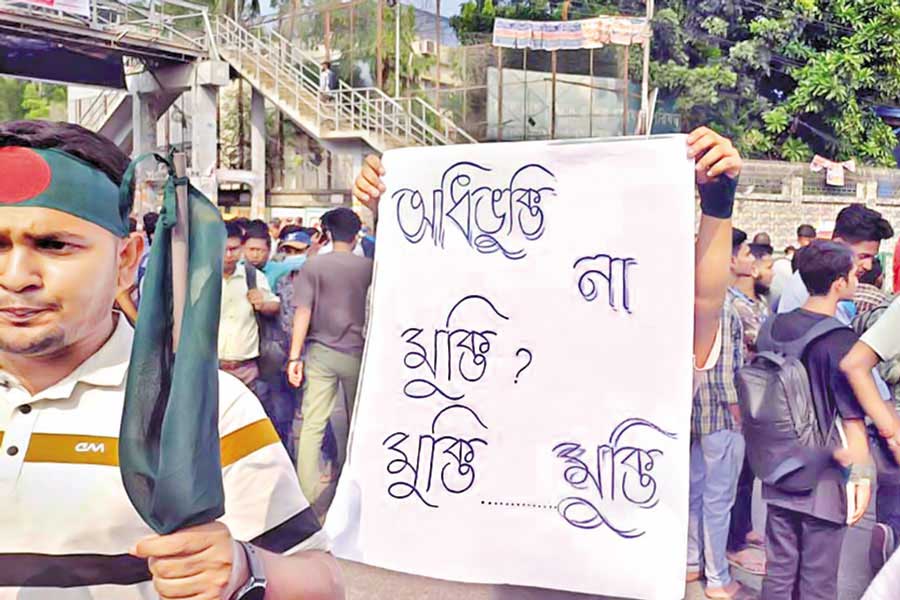 অধিভুক্তি
না
মুক্তি ?
মুক্তি ........... মুক্তি
GW